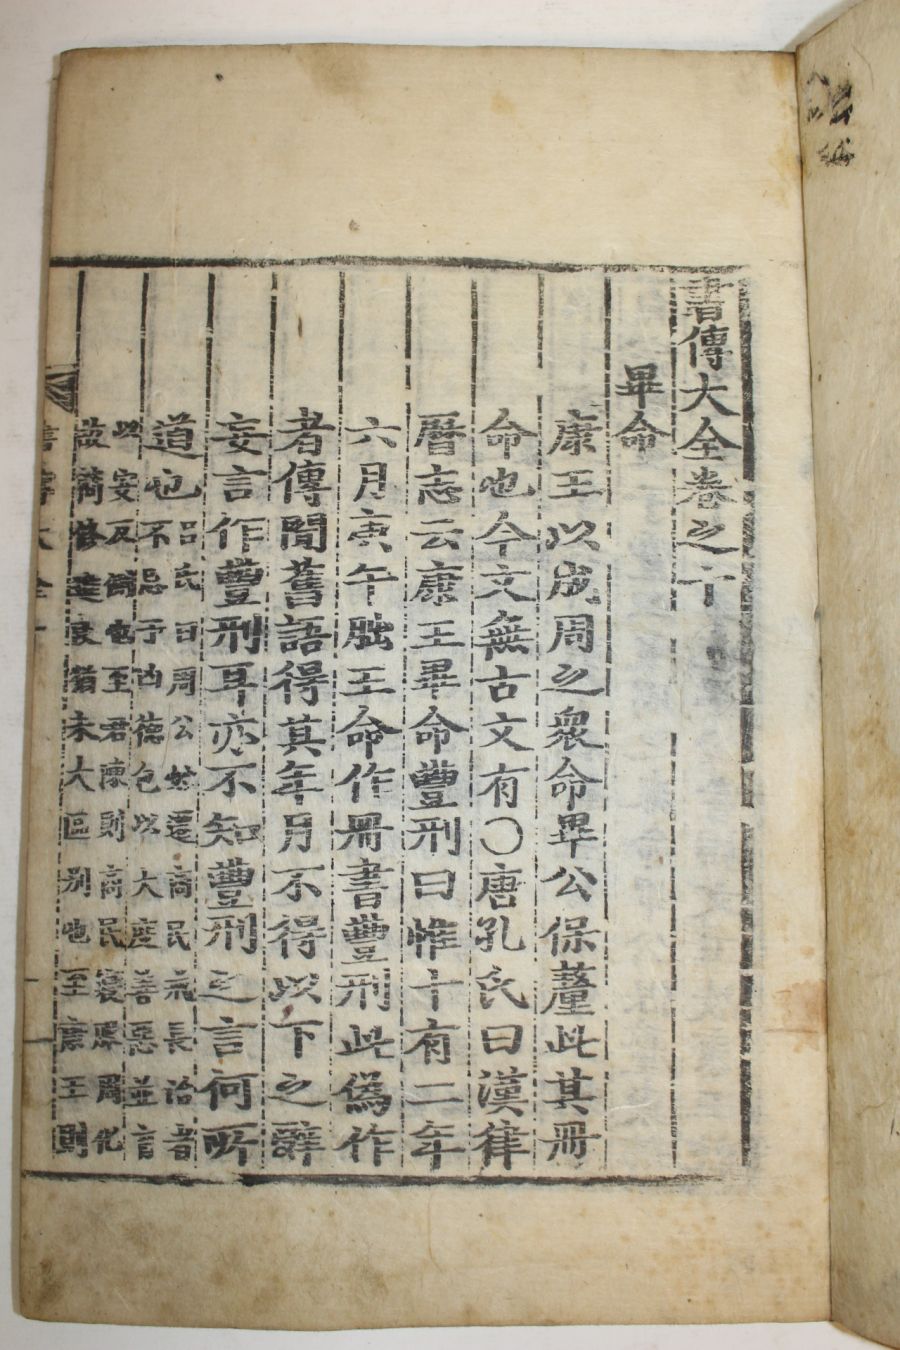 書傳大全卷之十
畢命
康王以成周之衆命畢公保釐此其冊
命也今文無古文有○唐孔氏曰漢律
曆志云康王畢命豐刑曰惟十有二年
六月庚午朏王命作冊書豐刑此僞作
者傳聞舊語得其年月不得以下之辭
妄言作豐刑耳亦不知豐刑之言何所
道也呂氏曰周公始遷商民長治者
不忌于凶德包以大度善惡並言
以安反側也至君陳則商民寖厚周化
故簡修進良猶未大區別也至康王則
書傳大全十